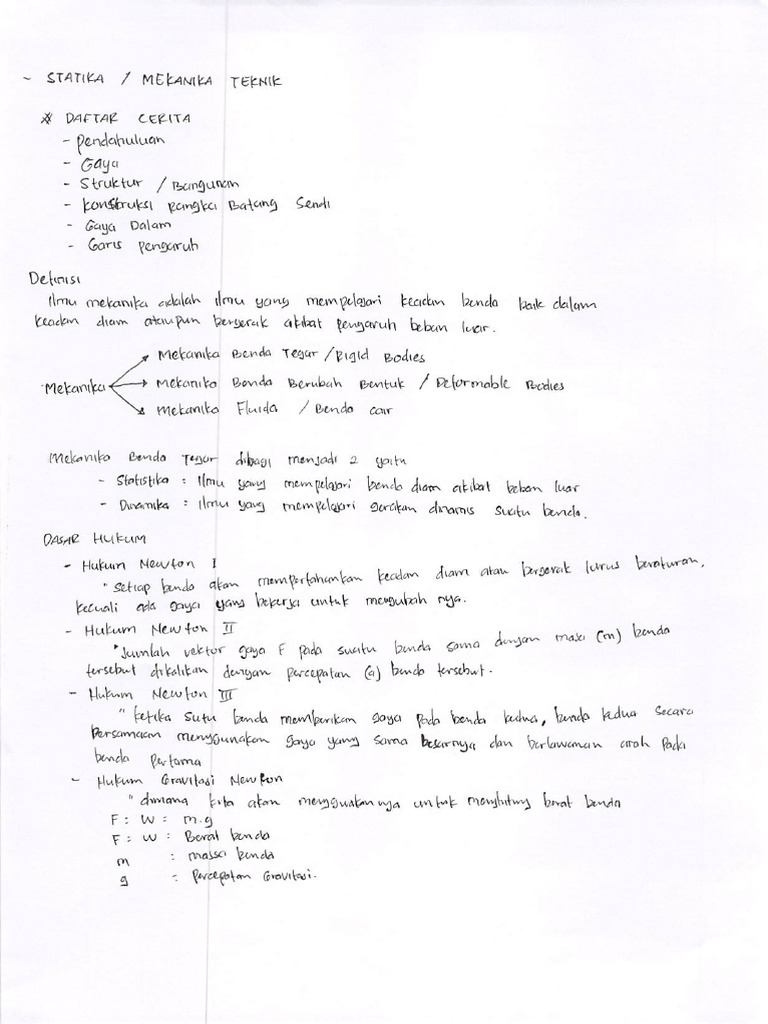 - STATIKA / MEKANIKA TEKNIK
* DAFTAR CERITA
- Pendahuluan
- Gaya
- Struktur / Bangunan
- Konstruksi Rangka Batang Sendi
- Gaya Dalam
- Garis Pengaruh
Definisi
Ilmu mekanika adalah ilmu yang mempelajari keadan benda baik dalam
keadan diam ataupun bergerak akibat pengaruh beban luar.
Mekanika Benda Tegar / Rigid Bodies
Mekanika Mekanika Benda Berubah Bentuk / Deformable Bodies
Mekanika Fluida / Benda cair
Mekanika Benda Tegar dibagi menjadi 2 yaitu
- Statistika : Ilmu yang mempelajari benda diam akibat beban luar
- Dinamika : Ilmu yang mempelajari gerakan dinamis suatu benda.
DASAR HUKUM
- Hukum Newton I
" Setiap benda akan mempertahankan keadan diam atau bergerak lurus beraturan,
kecuali ada gaya yang bekerja untuk mengubah nya.
- Hukum Newton II
"Jumlah vektor gaya F pada suatu benda sama dengan masa (m) benda
tersebut dikalikan dengan percepatan (a) benda tersebut.
- Hukum Newton III
" ketika sutu benda memberikan gaya pada benda kedua, benda kedua secara
bersamaan menggunakan gaya yang sama besarnya dan berlawanan arah pada
benda pertama
- Hukum Gravitasi Newton
" dimana kita akan menggunakannya untuk menghitung berat benda
F : W : m.g
F : W : Berat benda
m : massa benda
g : Percepatan Gravitasi.